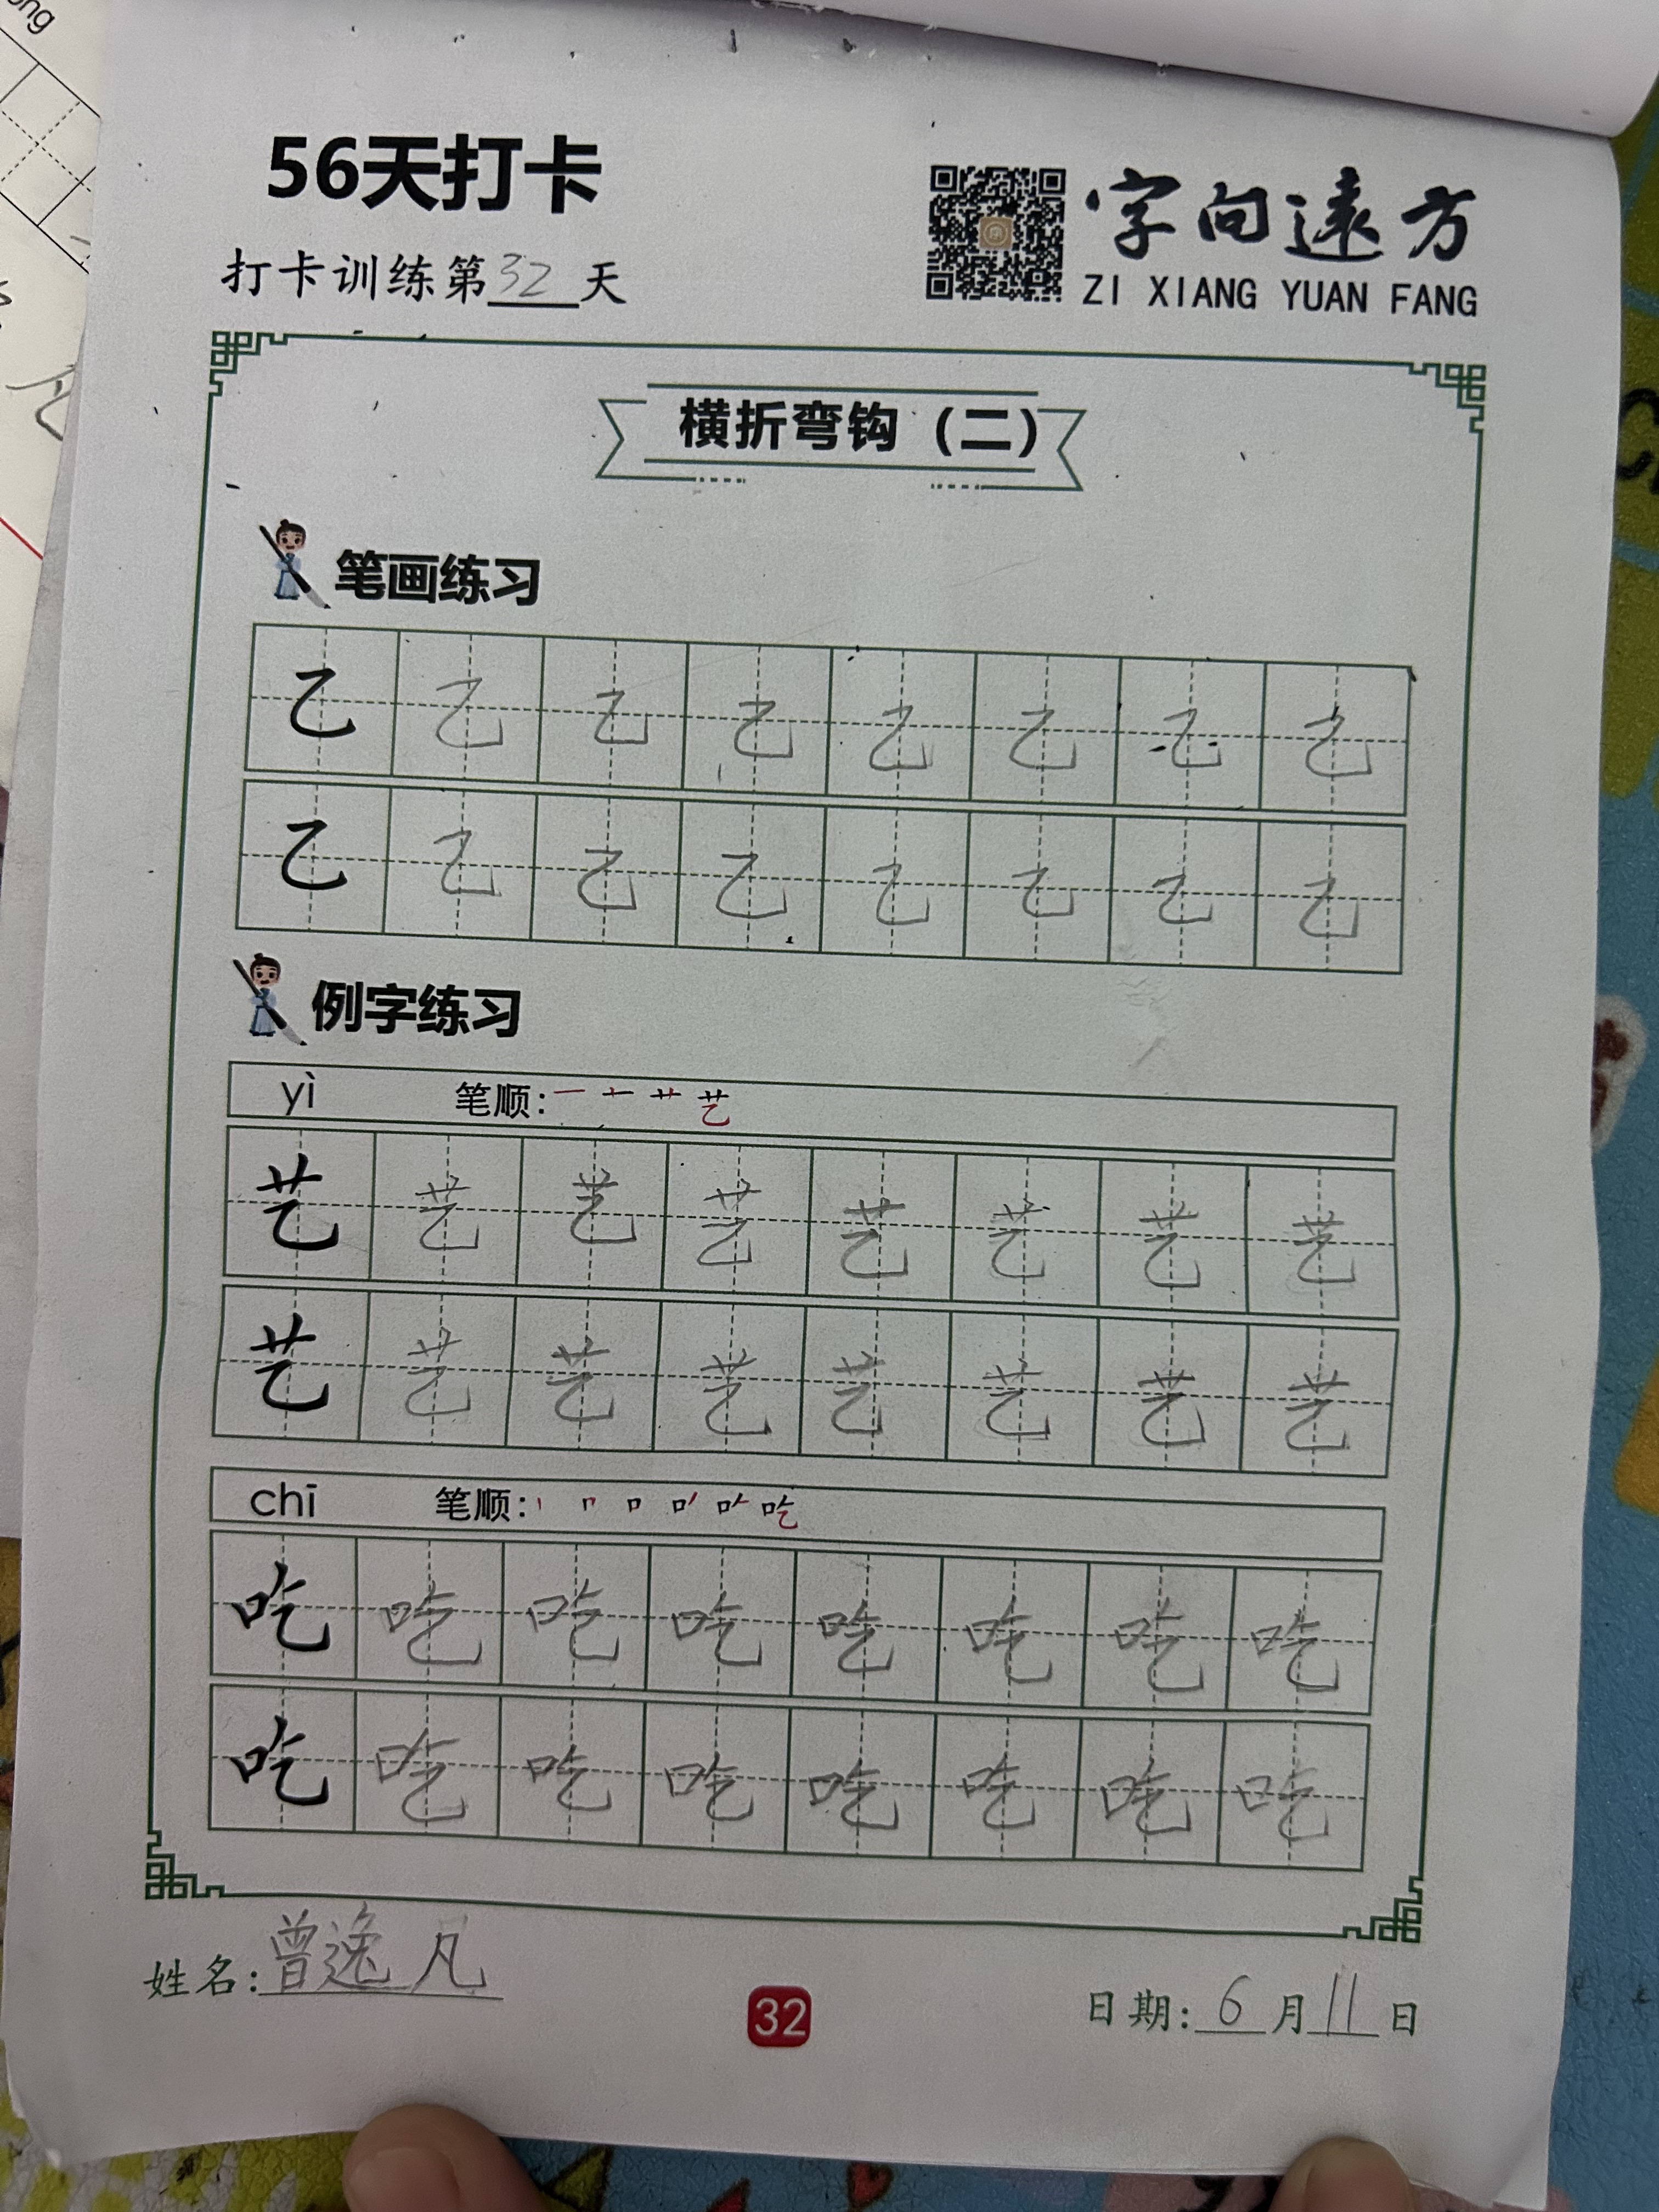 ong
56天打卡
字向遠方
ZI XIANG YUAN FANG
打卡训练第32天
横折弯钩（二）
笔画练习
乙 乙 乙 乙 乙 乙 乙 乙
乙 乙 乙 乙 乙 乙 乙 乙
例字练习
yì 笔顺: 一 十 艹 艺
艺 艺 艺 艺 艺 艺 艺 艺
艺 艺 艺 艺 艺 艺 艺 艺
chī 笔顺: 丨 𠃍 口 吃
吃 吃 吃 吃 吃 吃 吃 吃
吃 吃 吃 吃 吃 吃 吃 吃
姓名: 曾逸凡
32
日期: 6月11日